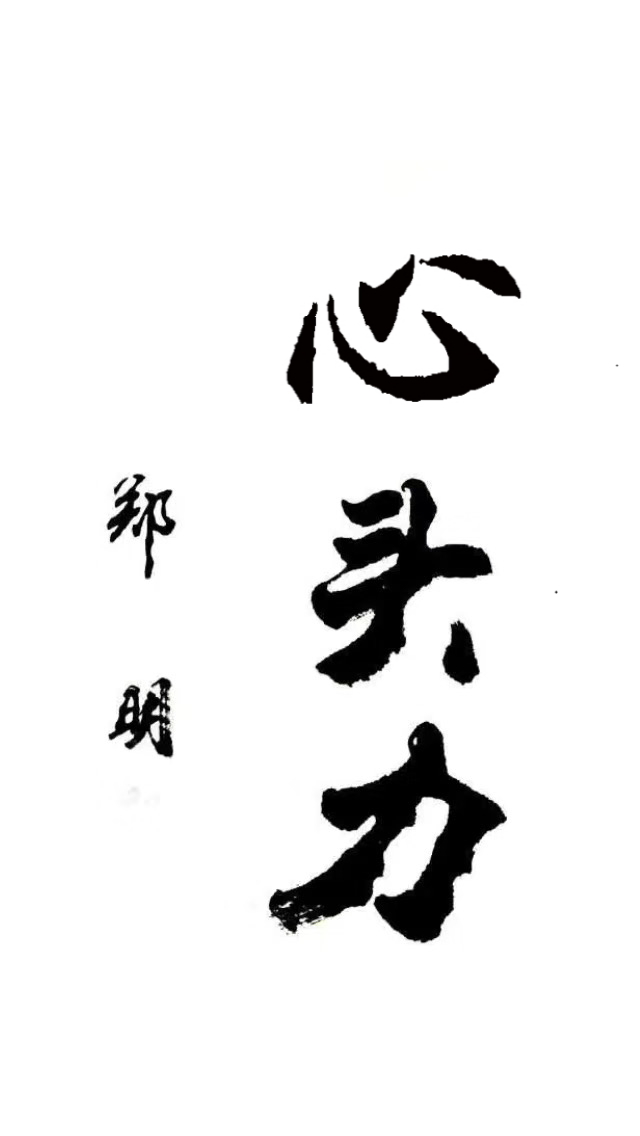 心头力
郑明